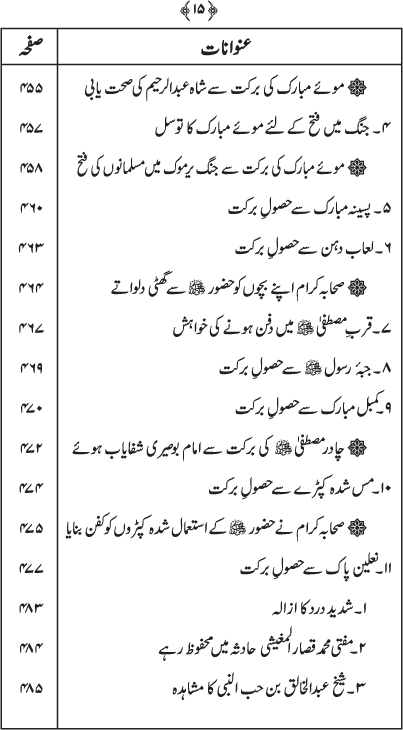 ﴿۱۵﴾
عنوانات صفحہ
۞ موئے مبارک کی برکت سے شاہ عبدالرحیم کی صحت یابی ۴۵۵
۴۔ جنگ میں فتح کے لئے موئے مبارک کا توسل ۴۵۷
۞ موئے مبارک کی برکت سے جنگ یرموک میں مسلمانوں کی فتح ۴۵۸
۵۔ پسینہ مبارک سے حصولِ برکت ۴۶۰
۶۔ لعاب دہن سے حصولِ برکت ۴۶۳
۞ صحابہ کرام اپنے بچوں کو حضور ﷺ سے گھٹی دلواتے ۴۶۴
۷۔ قربِ مصطفیٰ ﷺ میں دفن ہونے کی خواہش ۴۶۷
۸۔ جبۂ رسول ﷺ سے حصولِ برکت ۴۶۹
۹۔ کمبل مبارک سے حصولِ برکت ۴۷۰
۞ چادرِ مصطفیٰ ﷺ کی برکت سے امام بوصیری شفایاب ہوئے ۴۷۲
۱۰۔ مس شدہ کپڑے سے حصولِ برکت ۴۷۴
۞ صحابہ کرام نے حضور ﷺ کے استعمال شدہ کپڑوں کو کفن بنایا ۴۷۵
۱۱۔ نعلین پاک سے حصولِ برکت ۴۷۷
۱۔ شدید درد کا ازالہ ۴۸۳
۲۔ مفتی محمد قصار المغیشی حادثہ میں محفوظ رہے ۴۸۴
۳۔ شیخ عبدالخالق بن حب النبی کا مشاہدہ ۴۸۵